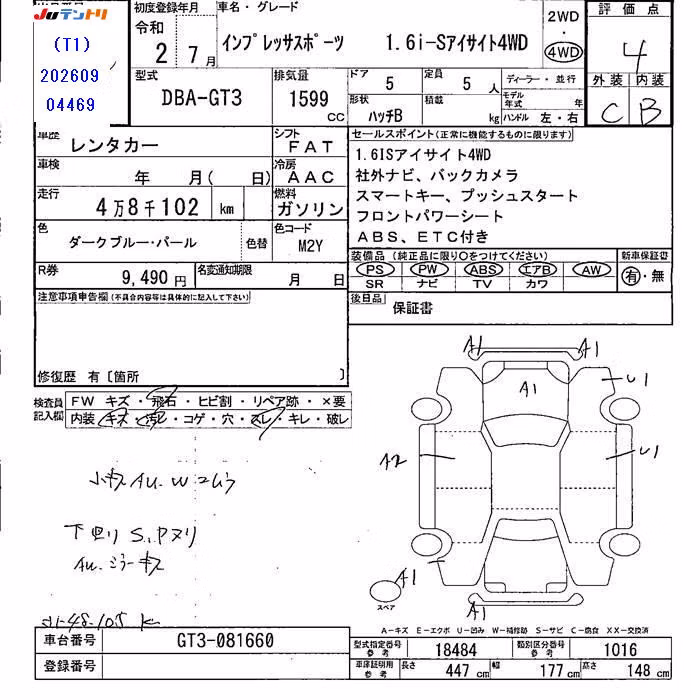 JUテントリ
(T1)
202609
04469
初度登録年月
令和
2年 7月
車名・グレード
インプレッサスポーツ 1.6i-Sアイサイト4WD
2WD
・
4WD
評価点
4
外装 内装
C B
型式
DBA-GT3
排気量
1599 CC
ドア
5
定員
5 人
ディーラー・並行
形状
ハッチB
積載
kg
モデル年式 年
ハンドル 左・右
車歴
レンタカー
シフト
FAT
車検
年 月( 日)
冷房
AAC
走行
4万8千102 km
燃料
ガソリン
色
ダークブルー・パール
色替
色コード
M2Y
R券
9,490 円
名変通知期限
月 日
セールスポイント(正常に機能するものに限ります)
1.6ISアイサイト4WD
社外ナビ、バックカメラ
スマートキー、プッシュスタート
フロントパワーシート
ABS、ETC付き
装備品(純正品に限り○をつけてください)
PS PW ABS エアB AW
SR ナビ TV カワ
新車保証書
有・無
後日品
保証書
注意事項申告欄(不具合内容等は具体的に記入して下さい)
修復歴 有〔箇所 〕
検査員記入欄
FW キズ・飛石・ヒビ割・リペア跡・×要
内装 キズ・汚レ・コゲ・穴・スレ・キレ・破レ
小キズAU.Wコムラ
下回りS.Pヌリ
AU.ミラーキズ
A1 A1
A1
U1
A2
U1
A1
A1
スペア
A-キズ E-エクボ U-凹み W-補修跡 S-サビ C-腐食 XX-交換済
車台番号
GT3-081660
登録番号
型式指定番号参考
18484
類別区分番号参考
1016
車庫証明用参考
長さ 447 cm 幅 177 cm 高さ 148 cm